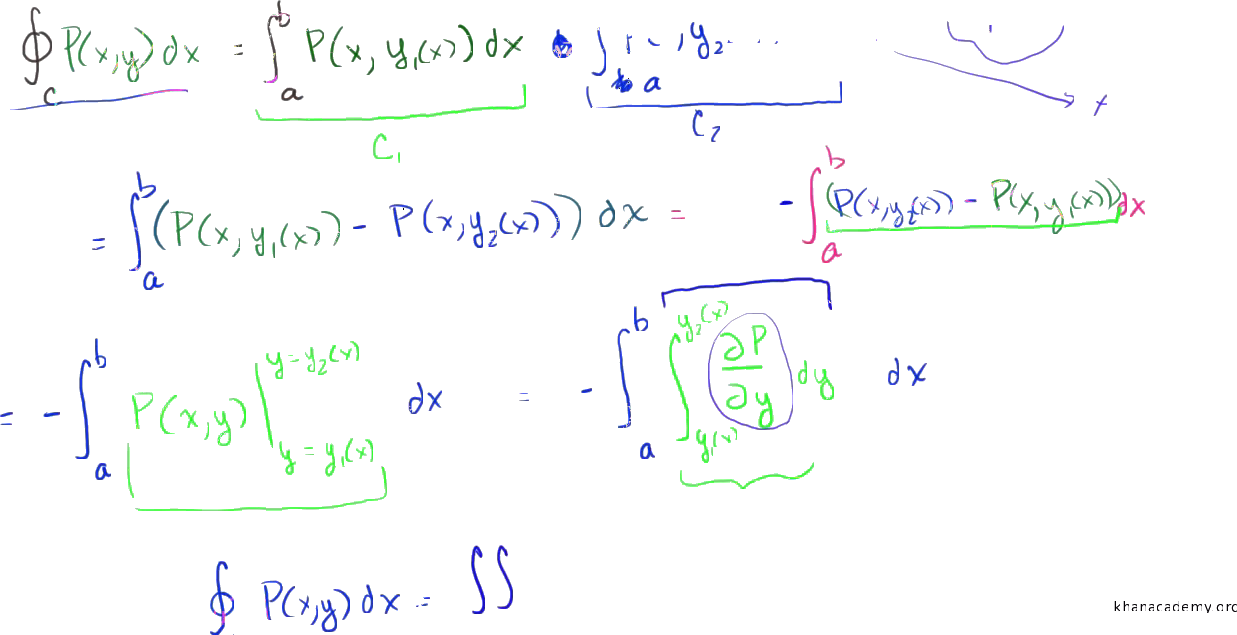 ∮_C P(x,y) dx = ∫_a^b P(x, y₁(x)) dx ∫_a y₂
C₁ C₂ x
= ∫_a^b (P(x, y₁(x)) - P(x, y₂(x))) dx = - ∫_a^b (P(x, y₂(x)) - P(x, y₁(x))) dx
= - ∫_a^b P(x,y) |_{y = y₁(x)}^{y = y₂(x)} dx = - ∫_a^b ∫_{y₁(x)}^{y₂(x)} ∂P/∂y dy dx
∮ P(x,y) dx = ∬
khanacademy.org